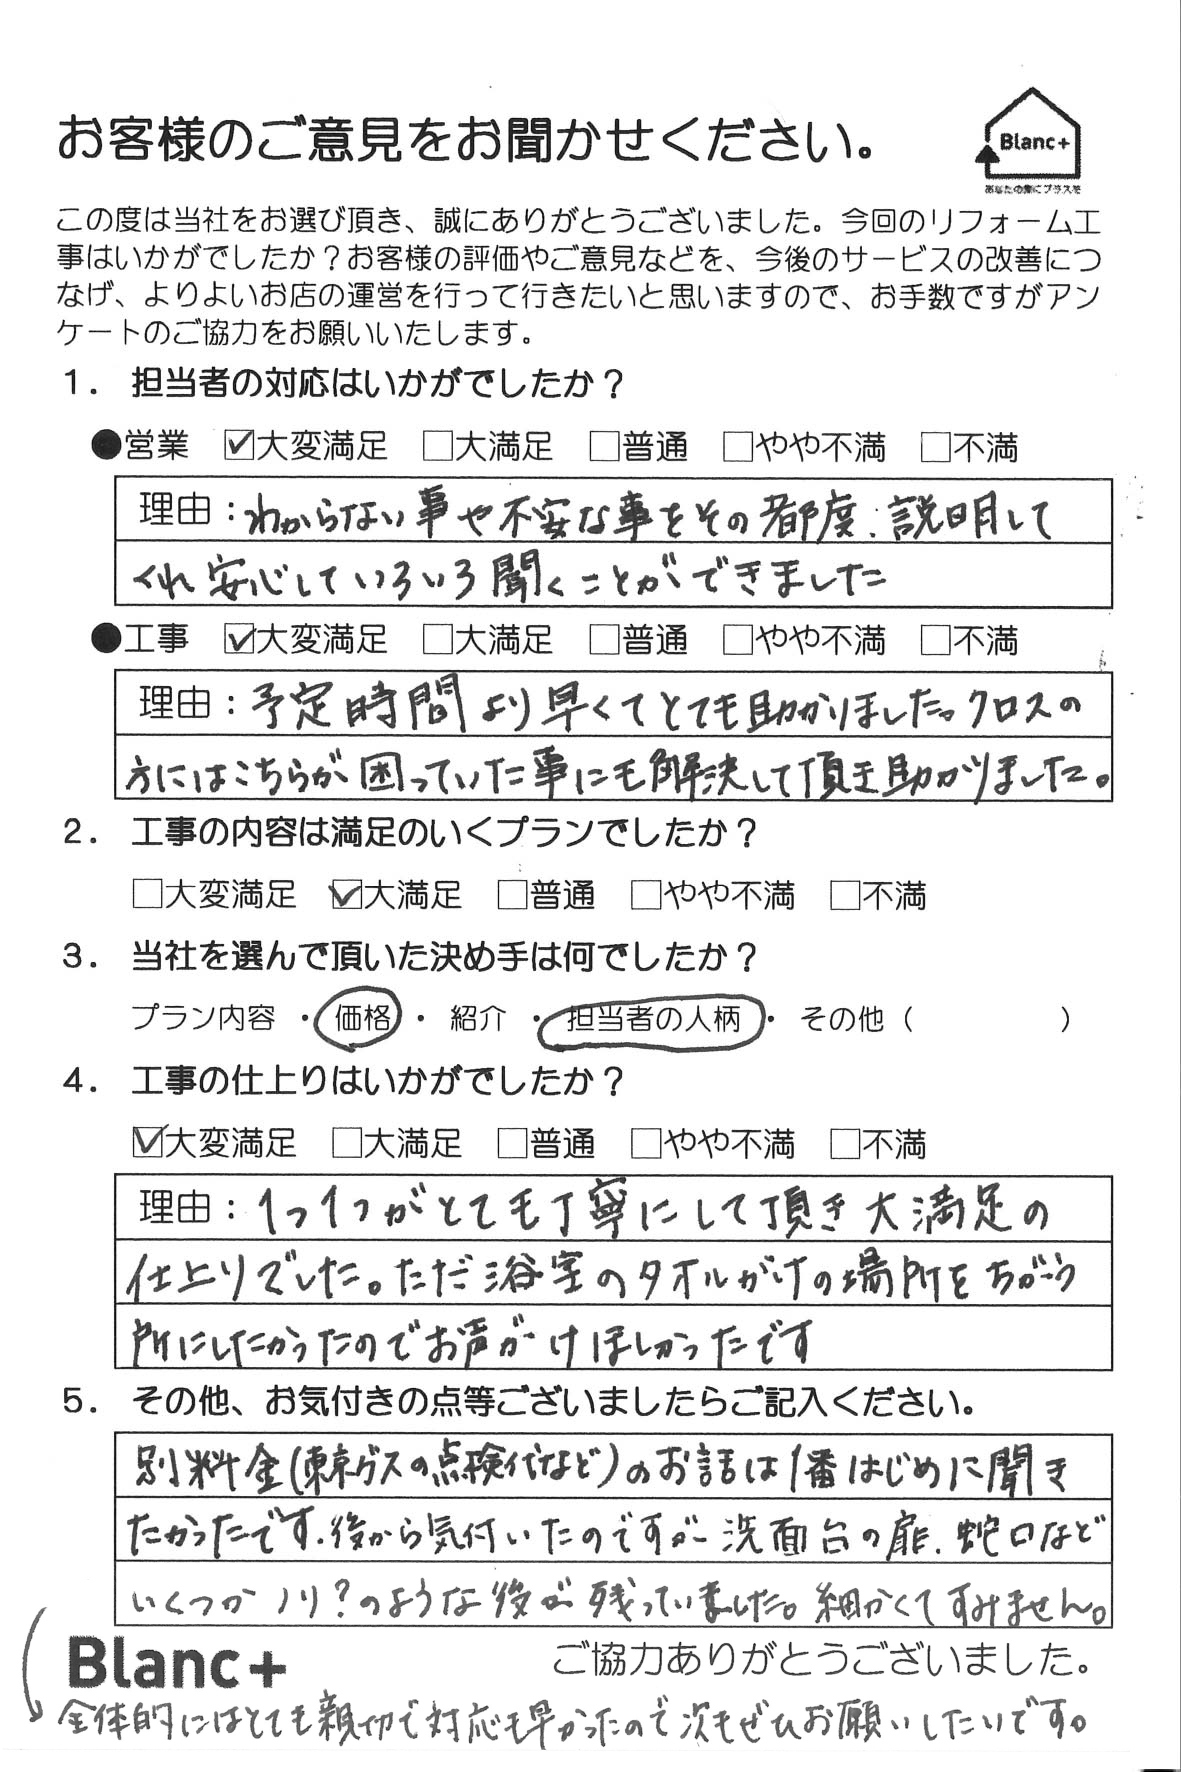 お客様のご意見をお聞かせください。
Blanc+
あなたの家にプラスを
この度は当社をお選び頂き、誠にありがとうございました。今回のリフォーム工
事はいかがでしたか？お客様の評価やご意見などを、今後のサービスの改善につ
なげ、よりよいお店の運営を行って行きたいと思いますので、お手数ですがアン
ケートのご協力をお願いいたします。
1. 担当者の対応はいかがでしたか？
●営業 ☑大変満足 □大満足 □普通 □やや不満 □不満
理由：わからない事や不安な事をその都度、説明して
くれ安心していろいろ聞くことができました
●工事 ☑大変満足 □大満足 □普通 □やや不満 □不満
理由：予定時間より早くてとても助かりました。クロスの
方にはこちらが困っていた事にも解決して頂き助かりました。
2. 工事の内容は満足のいくプランでしたか？
□大変満足 ☑大満足 □普通 □やや不満 □不満
3. 当社を選んで頂いた決め手は何でしたか？
プラン内容 ・ 価格 ・ 紹介 ・ 担当者の人柄 ・ その他（ ）
4. 工事の仕上りはいかがでしたか？
☑大変満足 □大満足 □普通 □やや不満 □不満
理由：1つ1つがとても丁寧にして頂き大満足の
仕上りでした。ただ浴室のタオルがけの場所をちがう
所にしたかったのでお声がけほしかったです
5. その他、お気付きの点等ございましたらご記入ください。
別料金(東京ガスの点検代など)のお話は1番はじめに聞き
たかったです。後から気付いたのですが洗面台の扉、蛇口など
いくつかノリ?のような後が残っていました。細かくてすみません。
Blanc+
ご協力ありがとうございました。
全体的にはとても親切で対応も早かったので次もぜひお願いしたいです。